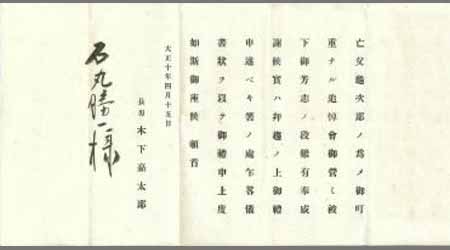 亡父亀次郎ノ爲メ御叮
重ナル追悼會御營ミ被
下御芳志ノ段難有奉感
謝候實ハ拜趨ノ上御禮
申述ベキ筈ノ處乍畧儀
書狀ヲ以テ御禮申上度
如斯御座候 頓首
大正十年四月十五日
長男 木下嘉太郎
石丸勝一樣